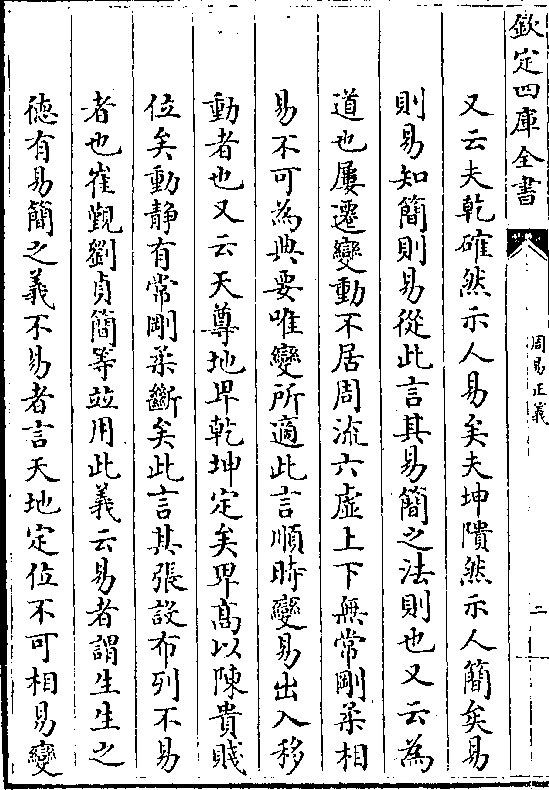 欽定四庫全書
周易正義
二
又云夫乾確然示人易矣夫坤隤然示人簡矣易
則易知簡則易從此言其易簡之法則也又云為
道也屢遷變動不居周流六虛上下無常剛柔相
易不可為典要唯變所適此言順時變易出入移
動者也又云天尊地卑乾坤定矣卑髙以陳貴賤
位矣動靜有常剛柔斷矣此言其張設布列不易
者也崔覲劉貞簡等並用此義云易者謂生生之
徳有易簡之義不易者言天地定位不可相易變